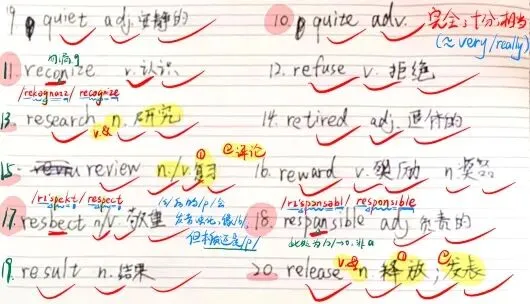 9. quiet adj. 安静的 10. quite adv. 完全;十分;相当
(≈ very/really)
勿漏g
11. reconize v. 认识 12. refuse v. 拒绝
/rekəgnaɪz/ recognize
13. research n. 研究 14. retired adj. 退休的
v.&
① ②评论
15. review n./v. 复习 16. reward v. 奖励 n 奖品
/rɪ'spekt/ respect /s/后的/p/会 /rɪ'spɒnsəbl/ responsible
发音浊化,像/b/,
17. resbect n/v. 敬重 但本质还是/p/ 18. respansible adj 负责的
此处为/ɒ/→o,非a
v.& ① ②
19. result n. 结果 20. release n. 释放;发表